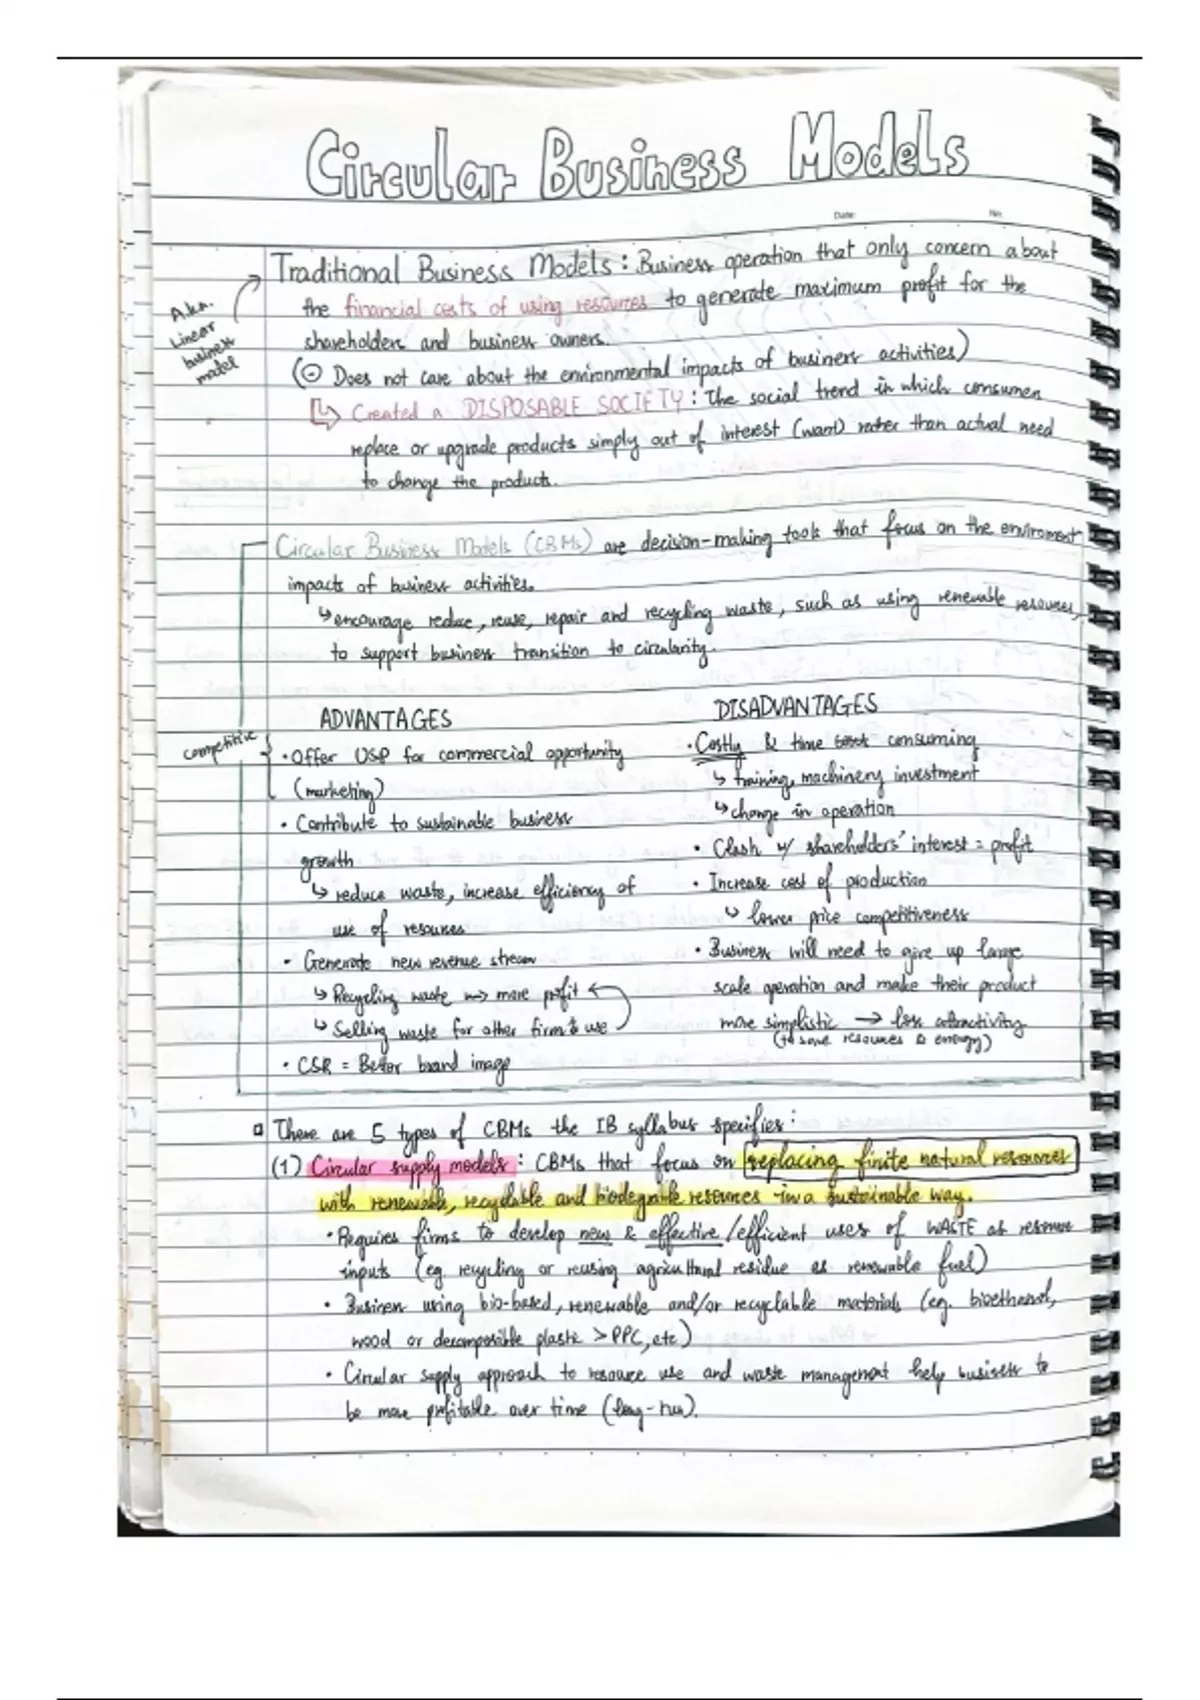 Circular Business Models
Date: No.
Traditional Business Models : Business operation that only concern about
A.k.a. Linear business model
the financial costs of using resources to generate maximum profit for the
shareholders and business owners.
(⊖ Does not care about the environmental impacts of business activities)
↳ Created a DISPOSABLE SOCIETY : The social trend in which consumers
replace or upgrade products simply out of interest (want) rather than actual need
to change the products.
Circular Business Models (CBMs) are decision-making tools that focus on the enviroment
impacts of business activities.
↳ encourage reduce, reuse, repair and recycling waste, such as using renewable resources,
to support business transition to circularity.
ADVANTAGES
competitive
• Offer USP for commercial opportunity
(marketing)
• Contribute to sustainable business
growth
↳ reduce waste, increase efficiency of
use of resources
• Generate new revenue stream
↳ Recycling waste → more profit
↳ Selling waste for other firms use
• CSR = Better brand image
DISADVANTAGES
• Costly & time consuming
↳ training, machinery investment
↳ change in operation
• Clash w/ shareholders' interest = profit
• Increase cost of production
↳ lower price competitiveness
• Business will need to give up large
scale operation and make their product
more simplistic → less attractivity
(to save resources & energy)
There are 5 types of CBMs the IB syllabus specifies :
(1) Circular supply models : CBMs that focus on replacing finite natural resources
with renewable, recyclable and biodegrable resources in a sustainable way.
• Requires firms to develop new & effective /efficient uses of WASTE as resource
inputs (eg. recycling or reusing agricultural residue as renewable fuel)
• Business using bio-based, renewable and/or recyclable materials (eg. bioethanol,
wood or decomposible plastic > PPC, etc)
• Circular supply approach to resource use and waste management help business to
be more profitable over time (long-run).